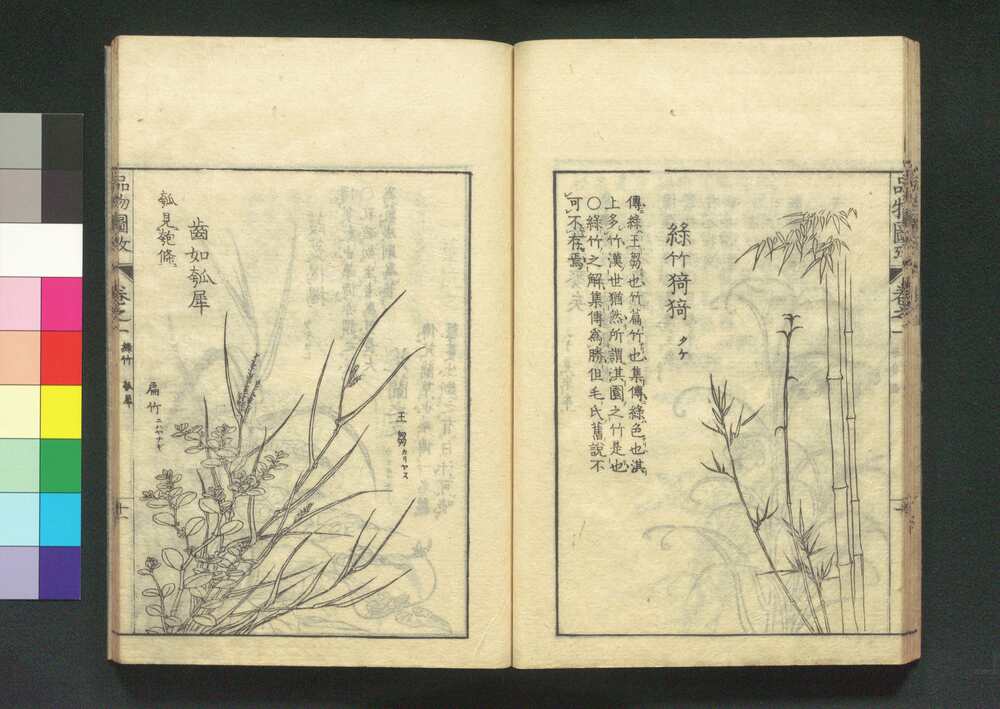 綠竹猗猗 タケ
傳綠王芻也竹萹竹也集傳綠色也淇
上多竹漢世猶然所謂淇園之竹是也
〇綠竹之解集傳爲勝但毛氏舊說不
可不存焉
品物圖攷
卷之一
王芻カリヤス
齒如瓠犀
瓠見匏條
扁竹ニハヤナギ
品物圖攷
卷之一
綠竹
瓠犀